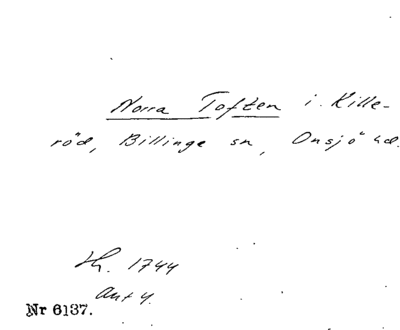 Norra Toften i Kille-
röd, Billinge sn, Onsjö hd.
Hh. 1744
Ant 4.
Nr 6137.